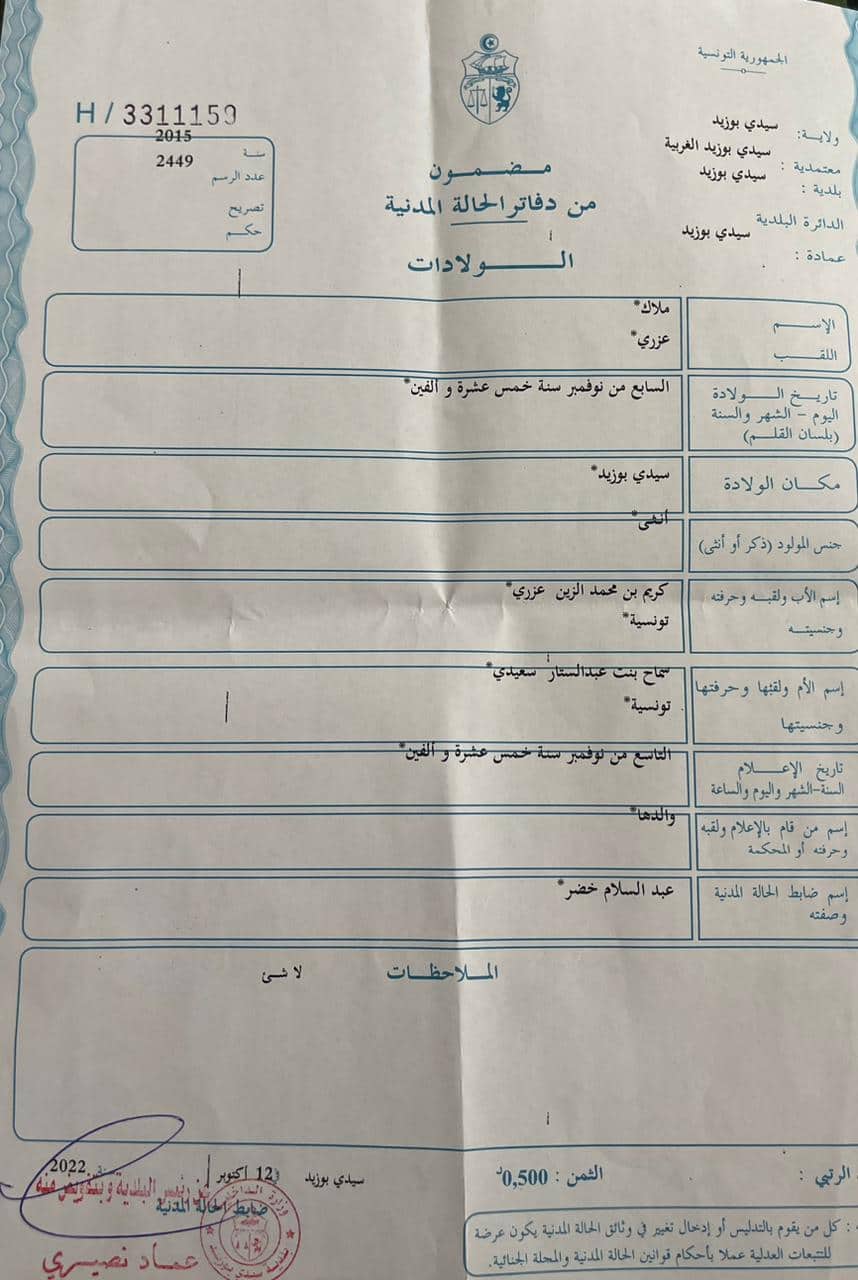 الجمهورية التونسية
ولاية: سيدي بوزيد
معتمدية : سيدي بوزيد الغربية
بلدية : سيدي بوزيد
الدائرة البلدية سيدي بوزيد
عمادة :
H / 3311159
سنة 2015
عدد الرسم 2449
تصريح
حكم
مضمون
من دفاتر الحالة المدنية
الولادات
الإسم ملاك*
اللقب عزري*
تاريخ الولادة السابع من نوفمبر سنة خمس عشرة و ألفين*
اليوم - الشهر والسنة
(بلسان القلم)
مكان الولادة سيدي بوزيد*
جنس المولود (ذكر أو أنثى) أنثى*
إسم الأب ولقبه وحرفته كريم بن محمد الزين عزري*
وجنسيته تونسية*
إسم الأم ولقبها وحرفتها سماح بنت عبدالستار سعيدي*
وجنسيتها تونسية*
تاريخ الإعلام التاسع من نوفمبر سنة خمس عشرة و ألفين*
السنة-الشهر واليوم والساعة
إسم من قام بالإعلام ولقبه والدها*
وحرفته أو المحكمة
إسم ضابط الحالة المدنية عبد السلام خضر*
وصفته
الملاحظات لا شئ
سيدي بوزيد في 12 أكتوبر سنة 2022
رئيس البلدية و بتفويض منه
ضابط الحالة المدنية
عماد نصيري
الرتبي :
الثمن : 0,500د
: كل من يقوم بالتدليس أو إدخال تغيير في وثائق الحالة المدنية يكون عرضة
للتتبعات العدلية عملا بأحكام قوانين الحالة المدنية والمجلة الجنائية.
وزارة الداخلية
بلدية سيدي بوزيد